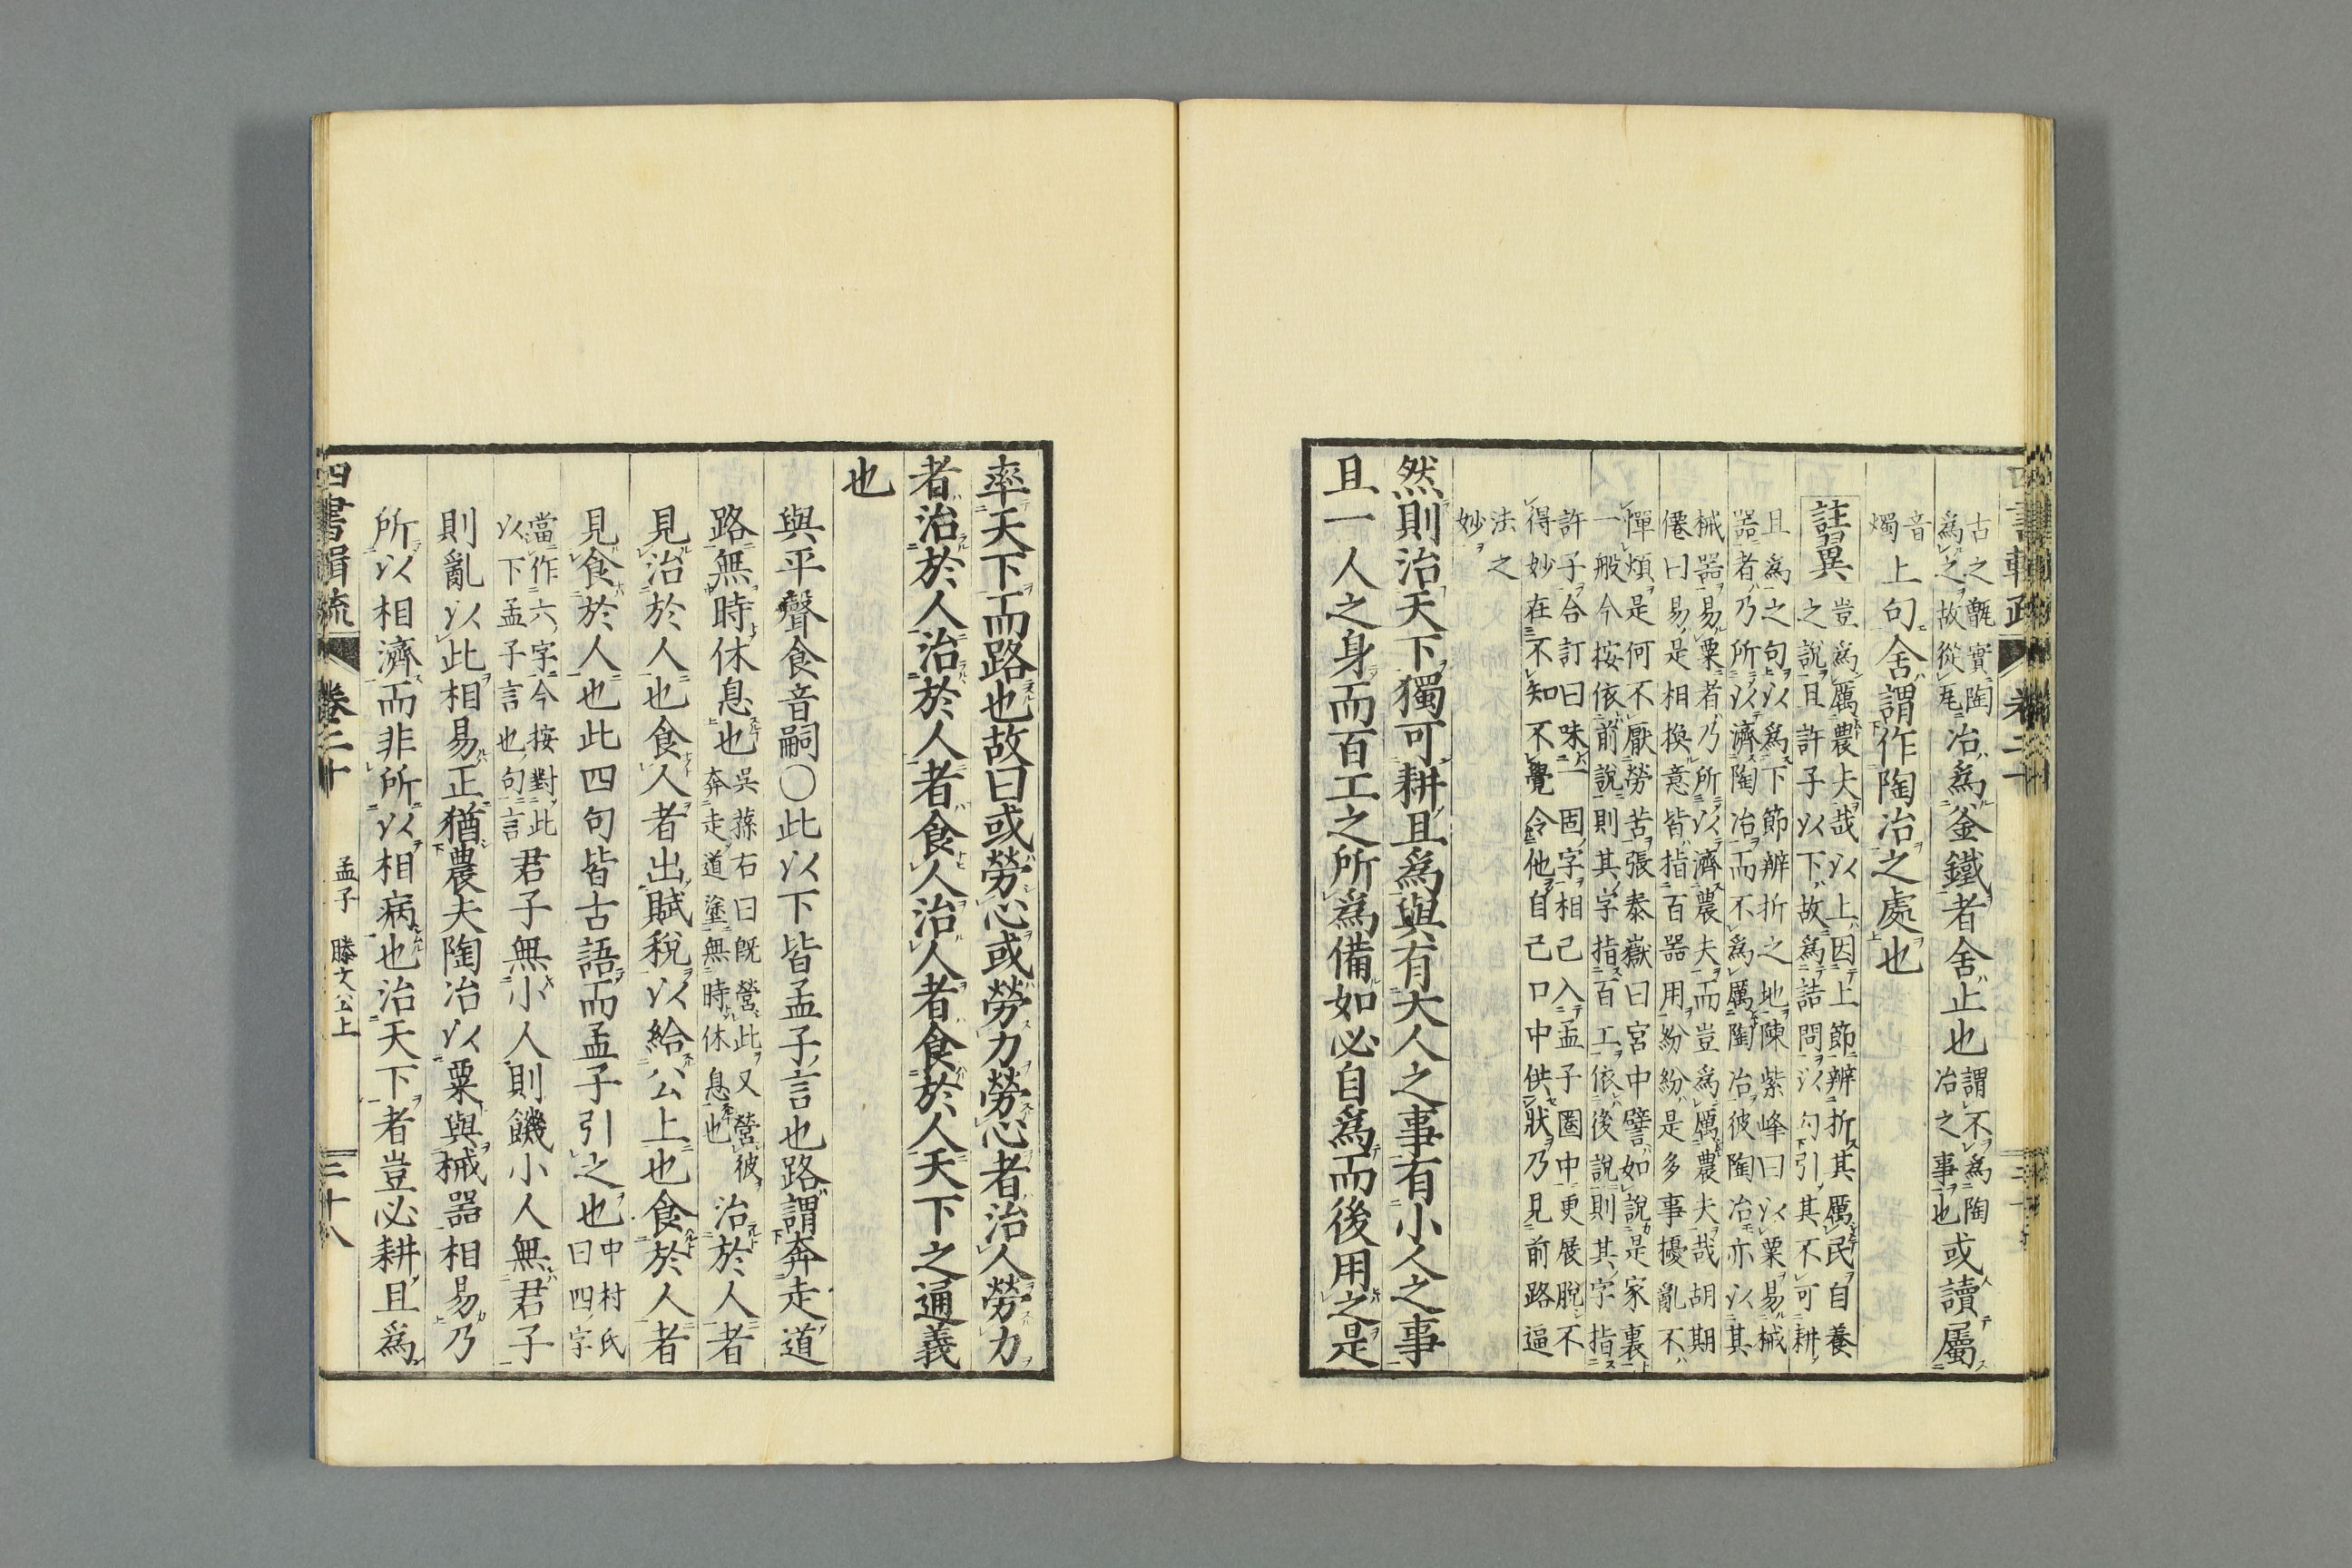 古之甑實陶
爲之故從瓦
冶爲釜鐵者舍止也
謂不爲陶
冶之事也
或讀屬
音
燭
上句舍謂作陶冶之處也
註翼
豈爲厲農夫哉以上因上節辨折其厲民自養
之說且許子以下故爲詰問以勾引其不可耕
且爲之句以爲下節辨折之地陳紫峰曰以粟易械
器者乃所以濟陶冶而不爲厲陶冶彼陶冶亦以其
械器易粟者乃所以濟農夫而豈爲厲農夫哉胡期
僊曰易是相換意皆指百器用紛紛是多事擾亂不
憚煩是何不厭勞苦張泰嶽曰宮中譬如說是家裏
一般今按依前說則其字指百工依後說則其字指
許子合訂曰味一固字相己入孟子圈中更展脫不
得妙在不知不覺令他自己口中供狀乃見前路逼
法之
妙
然則治天下獨可耕且爲與有大人之事有小人之事
且一人之身而百工之所爲備如必自爲而後用之是
率天下而路也故曰或勞心或勞力勞心者治人勞力
者治於人治於人者食人治人者食於人天下之通義
也
與平聲食音嗣○此以下皆孟子言也路謂奔走道
路無時休息也
吳蓀右曰旣營此又營彼
奔走道塗無時休息也
治於人者
見治於人也食人者出賦稅以給公上也食於人者
見食於人也此四句皆古語而孟子引之也
中村氏
曰四字
當作六字今按對此
以下孟子言也句言
君子無小人則饑小人無君子
則亂以此相易正猶農夫陶冶以粟與械器相易乃
所以相濟而非所以相病也治天下者豈必耕且爲
四書輯疏
卷二十
孟子
滕文公上
三十八